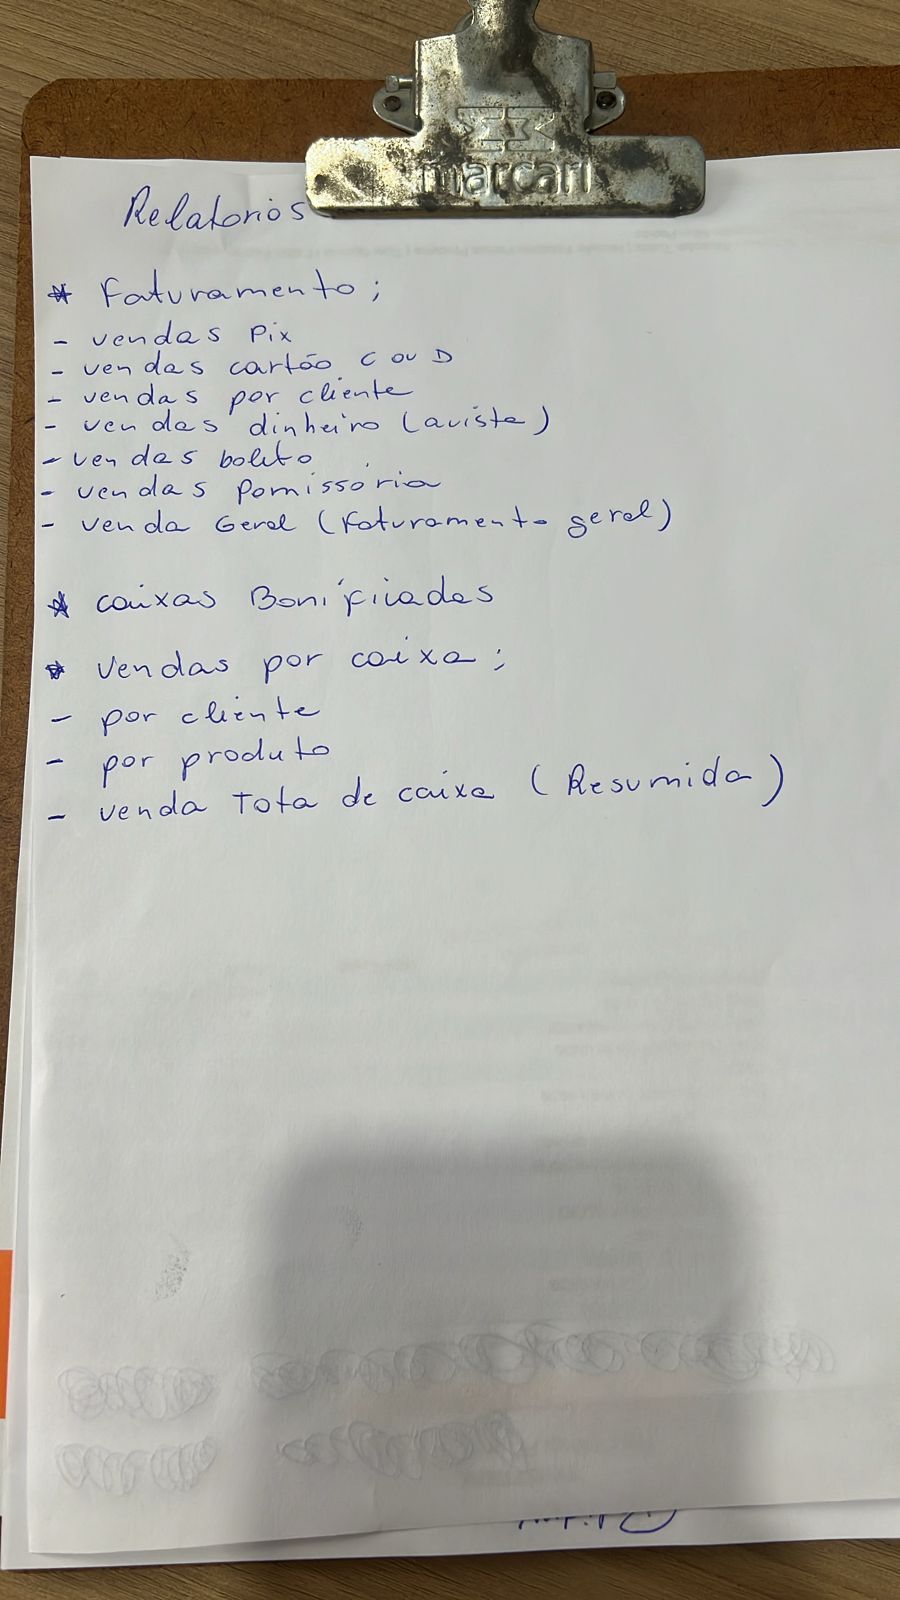 marcari
Relatorios
* Faturamento;
- vendas Pix
- vendas cartão C ou D
- vendas por cliente
- vendas dinheiro (avista)
- vendas boleto
- vendas Pomissória
- venda Geral (Faturamento geral)
* caixas Bonificadas
* Vendas por caixa;
- por cliente
- por produto
- venda Tota de caixa (Resumida)